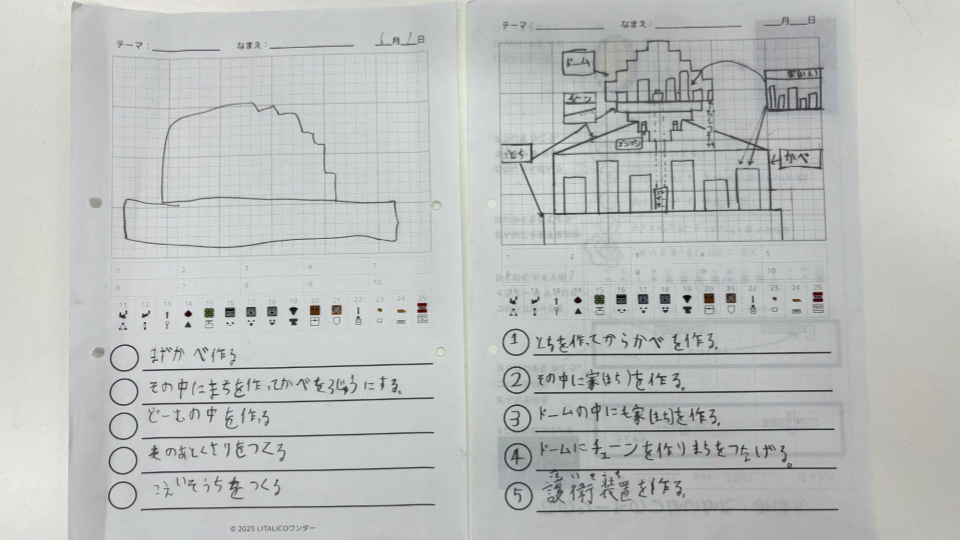 テーマ： なまえ： 6月1日
1 2 3 4 5
6 7 8 9 10
11 12 13 14 15 16 17 18 19 20 21 22 23 24 25
まずかべ作る
その中にまちを作ってかべを
にする。
どーむの中を作る
そのあとくさりをつくる
ごえいそうちをつくる
© 2025 LITALICOワンダー
テーマ： なまえ： 月 日
ドーム
家(いえ)
チェーン
とち
かべ
1 2 3 4 5
10
11 12 13 14 15 16 17 18 19 20 21 22 23 24 25
① とちを作ってからかべを作る。
② その中に家(まち)を作る。
③ ドームの中にも家(まち)を作る。
④ ドームにチェーンを作りまちをつなげる。
⑤ 護衛装置を作る。